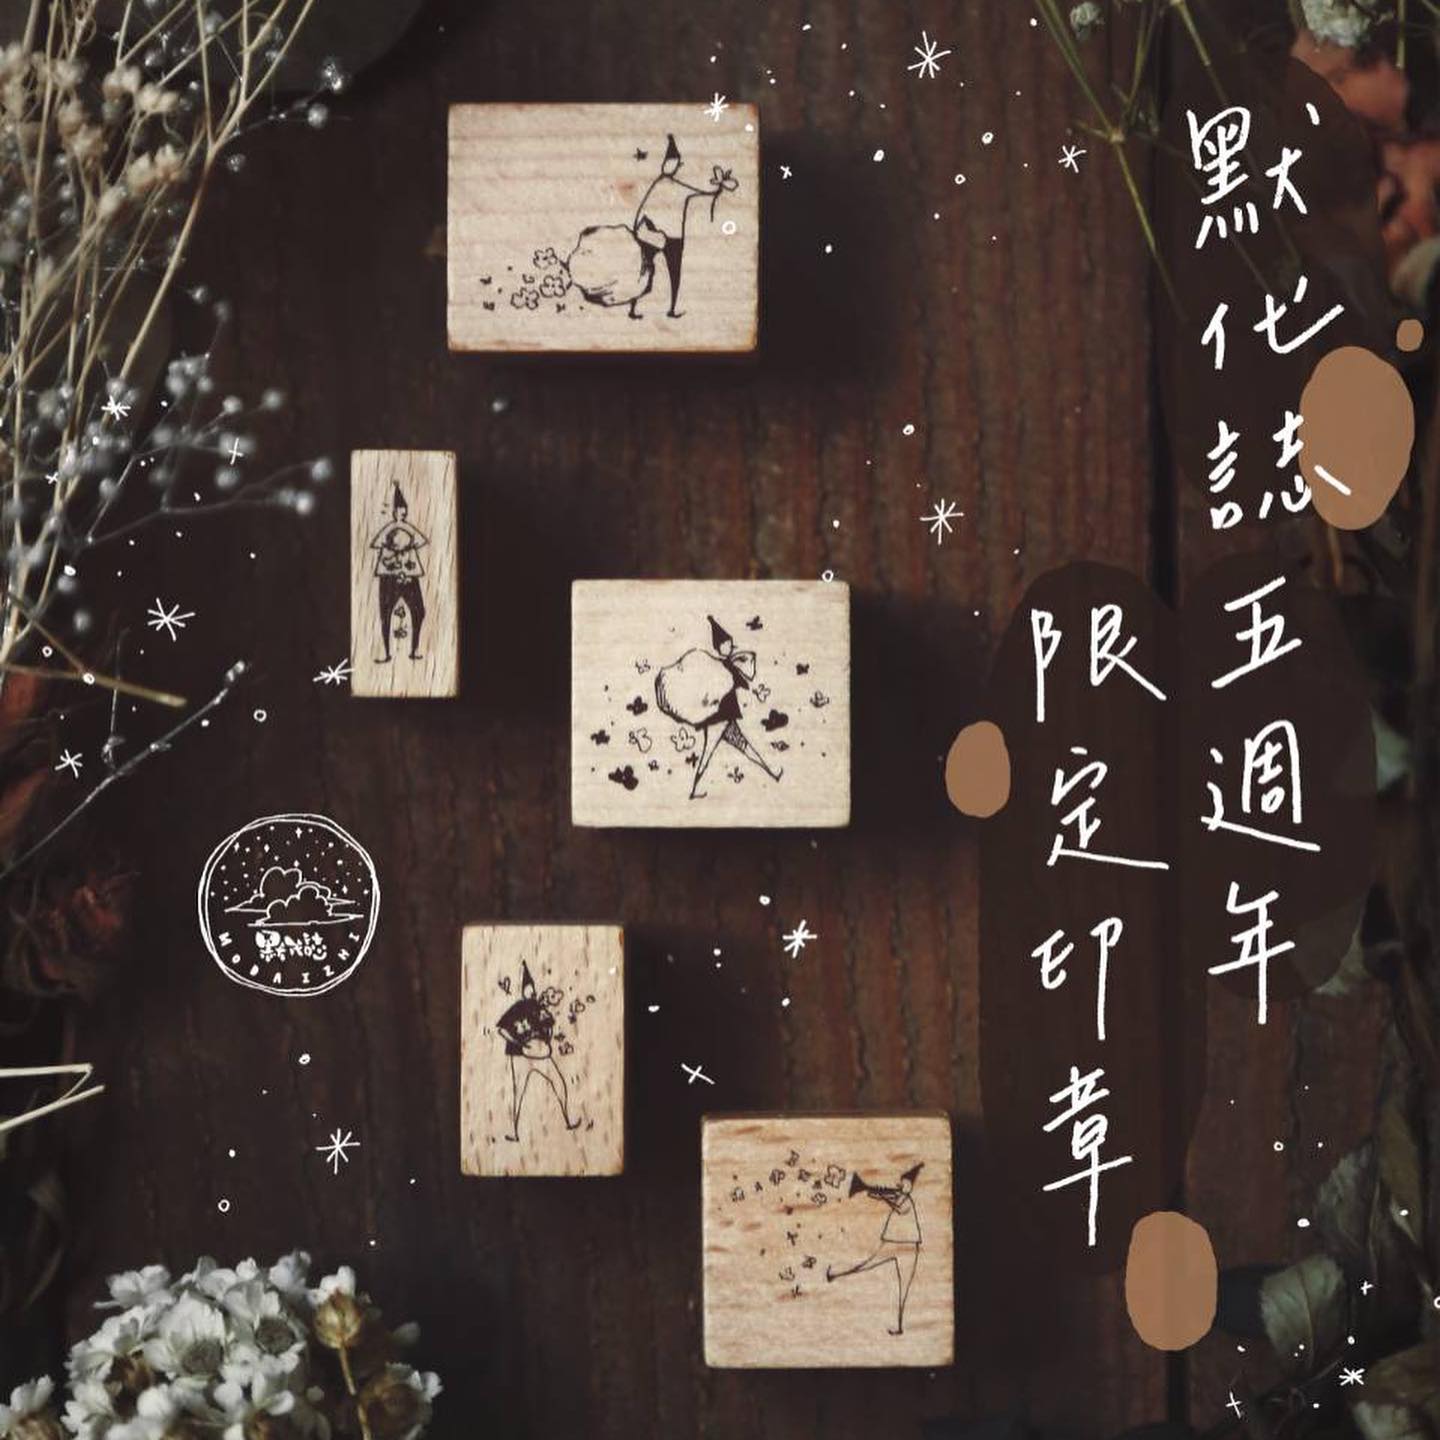 默代誌五週年
限定印章
默代誌
MODAIZHI